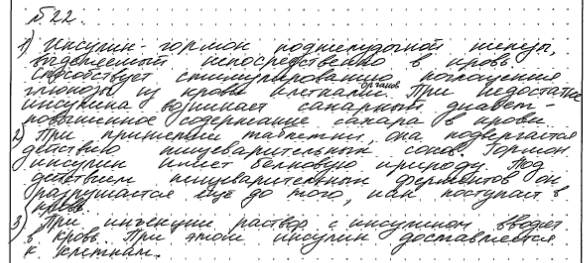 № 22.
1) Инсулин - гормон поджелудочной железы,
выделяемый непосредственно в кровь.
Способствует стимулированию поглощения
глюкозы из крови клетками органов. При недостатке
инсулина возникает сахарный диабет -
повышенное содержание сахара в крови.
2) При принятии таблетки, она подвергается
действию пищеварительных соков. Гормон
инсулин имеет белковую природу. Под
действием пищеварительных ферментов он
разрушается ещё до того, как поступает в
кровь.
3) При инъекции раствор с инсулином вводят
в кровь. При этом инсулин доставляется
к клеткам.